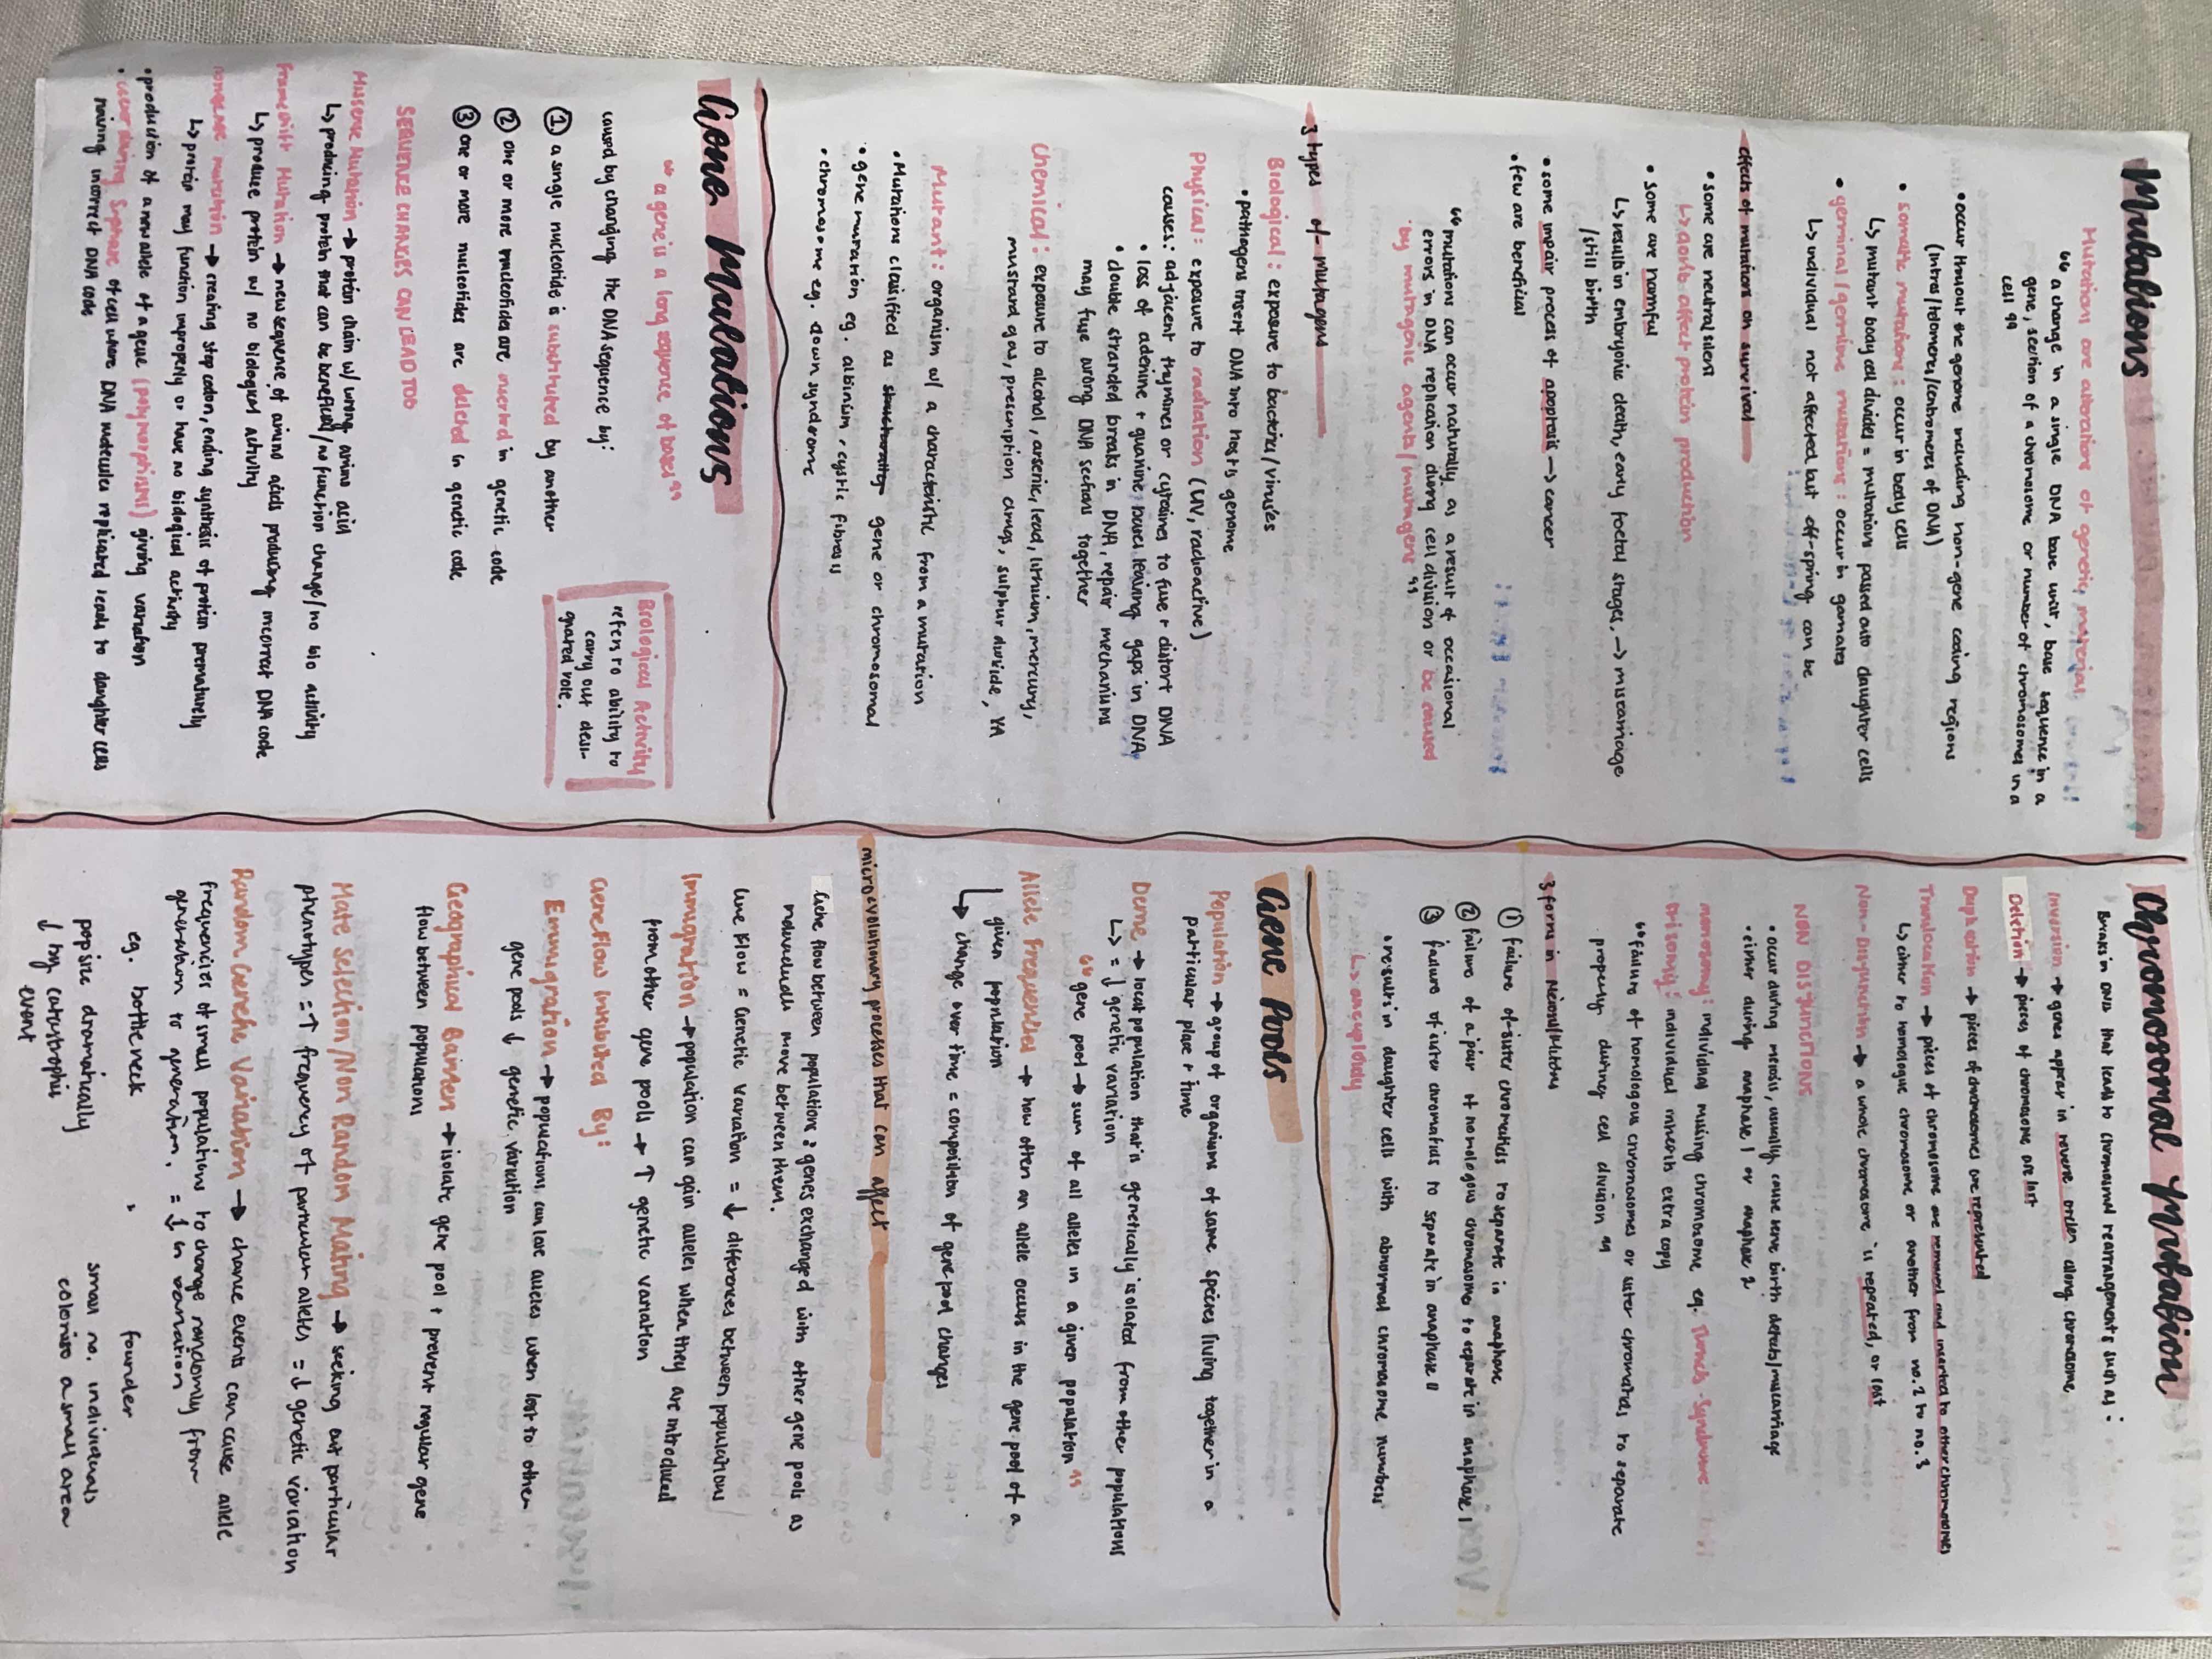 Mutations
Mutations are alterations of genetic material
"a change in a single DNA base unit, base sequence in a
gene, section of a chromosome or number of chromosomes in a
cell"
• occur thruout the genome including non-gene coding regions
(intras/telomeres/centromeres of DNA)
• somatic mutations: occur in body cells
↳ mutant body cell divides = mutations passed onto daughter cells
• germinal/germline mutations: occur in gamates
↳ individual not affected but off-spring can be
effects of mutations on survival
• some are neutral silent
↳ don't affect protein production
• some are harmful
↳ results in embryonic death, early foetal stages, → miscarriage
/still birth
• some impair process of apoptosis → cancer
• few are beneficial
"mutations can occur naturally as a result of occasional
errors in DNA replication during cell division or be caused
by mutagenic agents/mutagens"
3 types of mutagens
Biological: exposure to bacteria/viruses
• pathogens insert DNA into host's genome
Physical: exposure to radiation (UV, radioactive)
causes: adjacent thymines or cytosines to fuse + distort DNA
• loss of adenine + guanine bases leaving gaps in DNA
• double stranded breaks in DNA, repair mechanisms
may fuse wrong DNA sections together
Chemical: exposure to alcohol, arsenic, lead, lithium, mercury,
mustard gas, prescription drugs, sulphur dioxide,
Mutant: organism w/ a characteristic from a mutation
• Mutations classified as structurally gene or chromosomal
• gene mutation eg. albinism, cystic fibrosis
• chromosome eg. down syndrome
Gene Mutations
"a gene is a long sequence of bases"
caused by changing the DNA sequence by:
① a single nucleotide is substituted by another
② one or more nucleotides are inserted in genetic code
③ one or more nucleotides are deleted in genetic code
Biological Activity
refers to ability to
carry out desi-
gnated role.
SEQUENCE CHANGES CAN LEAD TOO
Missense Mutation → protein chain w/ wrong amino acid
↳ producing protein that can be beneficial/no function change/no bio activity
Frameshift Mutation → new sequence of amino acids producing incorrect DNA code
↳ produce protein w/ no biological activity
nonsense mutation → creating stop codon, ending synthesis of protein prematurely
↳ protein may function improperly or have no biological activity
• production of a new allele of a gene (polymorphisms) giving variation
• error during S-phase of cell where DNA molecules replicated leads to daughter cells
having incorrect DNA code
Chromosomal Mutation
Breaks in DNA that leads to chromosomal rearrangements such as:
Inversion → genes appear in reverse order along chromosome
Deletion → pieces of chromosome are lost
Duplication → pieces of chromosomes are represented
Translocation → pieces of chromosome are removed and inserted to other chromosomes
↳ either to homologue chromosome or another from no. 2 to no. 3
Non-Disjunction → a whole chromosome is repeated, or lost
NON DISJUNCTIONS
• occur during meiosis, usually cause severe birth defects/miscarriage
• either during anaphase 1 or anaphase 2
monosomy: individual missing chromosome eg. Turners-Syndrome
trisomy: individual inherits extra copy
"failure of homologous chromosomes or sister chromatids to separate
properly during cell division"
3 forms in Meiosis/Mitosis
① failure of sister chromatids to separate in anaphase
② failure of a pair of homologous chromosomes to separate in anaphase I
③ failure of sister chromatids to separate in anaphase II
• results in daughter cells with abnormal chromosome numbers
↳ aneuploidy
Gene Pools
Population → group of organisms of same species living together in a
particular place + time
Deme → local population that is genetically isolated from other populations
↳ = ↓ genetic variation
"gene pool → sum of all alleles in a given population"
Allele Frequencies → how often an allele occurs in the gene pool of a
given population
↳ change over time = composition of gene pool changes
microevolutionary processes that can affect
Gene flow between populations: genes exchanged with other gene pools as
individuals move between them.
Gene Flow = Genetic Variation = ↓ differences between populations
Immigration → population can gain alleles when they are introduced
from other gene pools → ↑ genetic variation
Gene Flow Inhibited By:
Emmigration → populations can lose alleles when lost to other
gene pools ↓ genetic variation
Geographical Barriers → isolate gene pool + prevent regular gene
flow between populations
Mate Selection/Non Random Mating → seeking out particular
phenotypes = ↑ frequency of particular alleles = ↓ genetic variation
Random Genetic Variation → chance events can cause allele
frequencies of small populations to change randomly from
generation to generation. = ↓ in variation
eg. bottleneck
pop size dramatically
↓ by catastrophic
event
founder
small no. individuals
colonise a small area